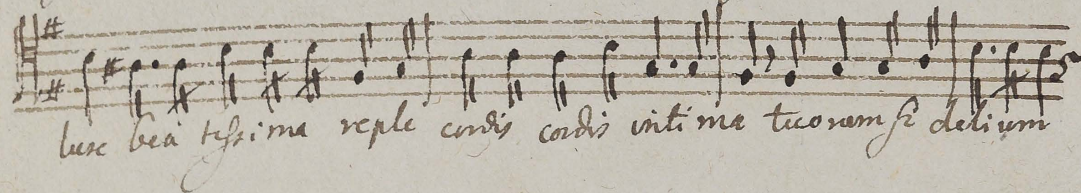 luxe beatissima reple cordis cordis intima tuorum fidelium